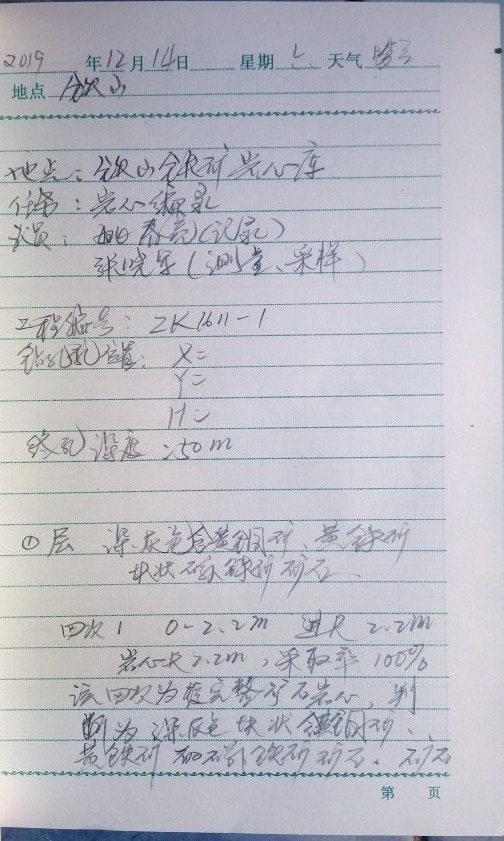 2019 年 12 月 14 日 星期 六 天气 晴
地点 铁山
地点: 铁山铁矿岩心库
任务: 岩心编录
人员: 姚春亮(记录)
张晓军(测量、采样)
工程编号: ZK1611-1
钻孔位置: X=
Y=
H=
终孔深度: 50m
① 层 深灰色含黄铜矿、黄铁矿
块状磁铁矿矿石、
回次1 0-2.2m 进尺 2.2m
岩心长2.2m, 采取率 100%
该回次为较完整矿石岩心, 判
断为深灰色块状含铜矿、
黄铁矿 磁铁矿矿石。矿石
第 页